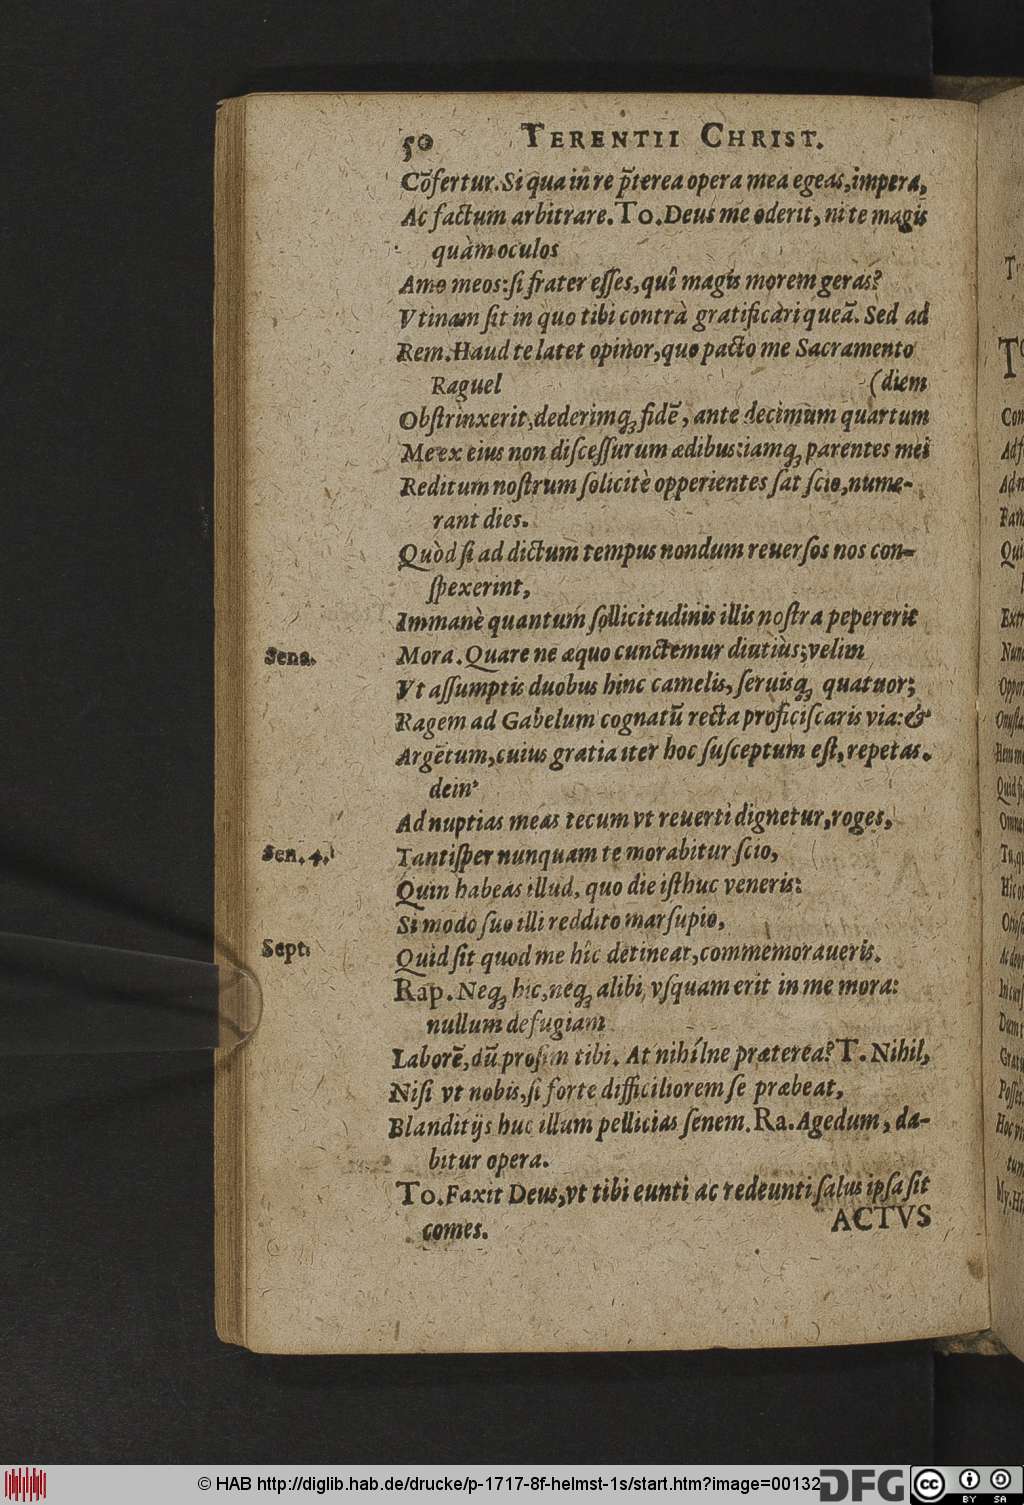 50 TERENTII CHRIST.
Cõfertur. Si qua in re p̃terea opera mea egeas, impera,
Ac factum arbitrare. To. Deus me oderit, ni te magis
quàm oculos
Amo meos: si frater esses, quî magis morem geras?
Vtinam sit in quo tibi contrà gratificari queã. Sed ad
Rem. Haud te latet opinor, quo pacto me Sacramento
Raguel (diem
Obstrinxerit, dederimq́; fidẽ, ante decimum quartum
Me ex eius non discessurum ædibus: iamq́; parentes mei
Reditum nostrum solicitè opperientes sat scio, nume-
rant dies.
Quòd si ad dictum tempus nondum reuersos nos con-
spexerint,
Immanè quantum sollicitudinis illis nostra pepererit
Sena. Mora. Quare ne æquo cunctemur diutiùs; velim
Vt assumptis duobus hinc camelis, seruisq́; quatuor;
Ragem ad Gabelum cognatũ recta proficiscaris via: &
Argẽtum, cuius gratia iter hoc susceptum est, repetas.
dein'
Ad nuptias meas tecum vt reuerti dignetur, roges,
Sen. 4. Tantisper nunquam te morabitur scio,
Quin habeas illud, quo die isthuc veneris:
Si modo suo illi reddito marsupio,
Sept. Quid sit quod me hîc detineat, commemoraueris.
Rap. Neq́; hic, neq́; alibi vsquam erit in me mora:
nullum defugiam
Laborẽ, dũ prosim tibi. At nihílne præterea? T. Nihil,
Nisi vt nobis, si forte difficiliorem se præbeat,
Blanditijs huc illum pellicias senem. Ra. Agedum, da-
bitur opera.
To. Faxit Deus, vt tibi eunti ac redeunti salus ipsa sit
comes. ACTVS
© HAB http://diglib.hab.de/drucke/p-1717-8f-helmst-1s/start.htm?image=00132
DFG
cc BY SA